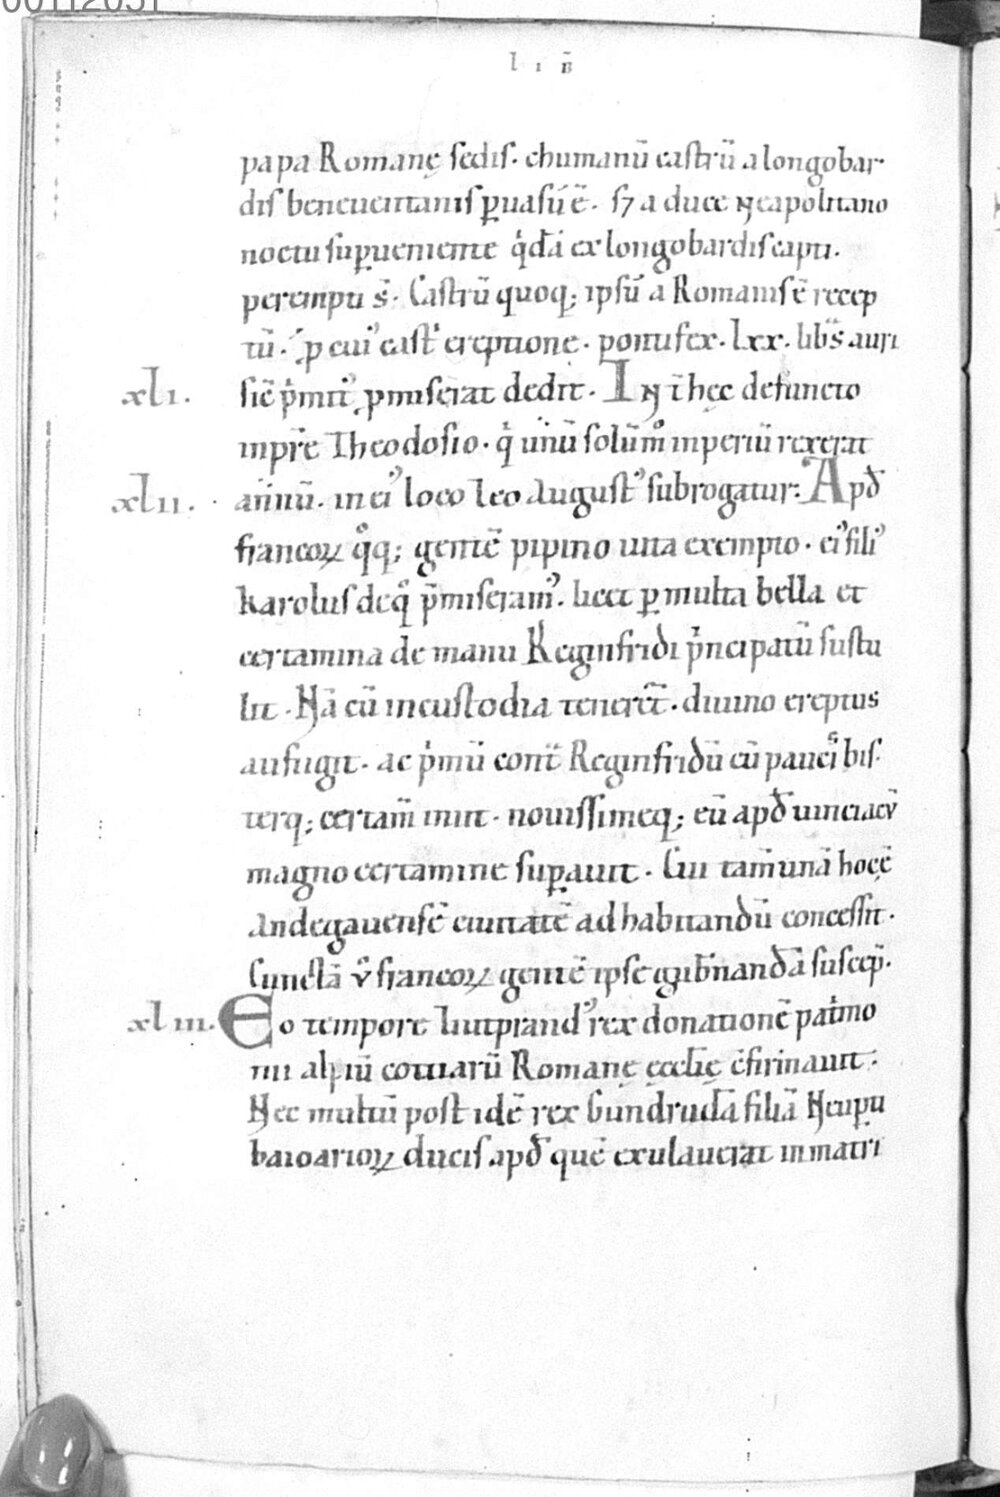 00112051
l i b̄
papa Romanę sedis. chumanū castrū a longobar
dis beneuentanis ꝑuasū ē. s⁊ a duce neapolitano
noctu suꝑueniente q̇dā ex longobardis capti.
perempti s̄. Castrū quoq; ipsū a Romanis ē recep
tū. ꝓ cui᾽ cast̄ ereptione. pontifex. lxx. libs̄ auri
xli. sic̄ p̄mit᾽ ꝓmiserat dedit. In t̄ hęc defuncto
impr̄e Theodosio. q̇ unū solūm̊ imperiū rexerat
xlii. annū. in ei᾽ loco leo August᾽ subrogatur. Apđ
francoꝝ q̊q; gentē pipino uita exempto. ei᾽ fili᾽
karolus deq̊ p̄miseram᾽. licet ꝑ multa bella et
certamina de manu Reginfridi p̄ncipatū sustu
lit. Nā cū in custodia teneret᷑. diuino ereptus
aufugit. ac p̄mū cont̄ Reginfridū cū pauci᷒ bis.
terq; certam̄ iniit. nouissimeq; eū apđ uinciacū
magno certamine suꝑauit. Cui tam̄ unā hoc ē
andegauensē ciuitatē ad habitandū concessit.
Cunctā v̊ francoꝝ gentē ipse gub̄nandā suscep̄.
xliii. Eo tempore liutprand᾽ rex donationē pat̄mo
nii alpiū cotiarū Romanę ęcclię c̄firmauit.
Nec multū post idē rex Gundrudā filiā Neuꝑti
baioarioꝝ ducis. apđ quē exulauerat in matri